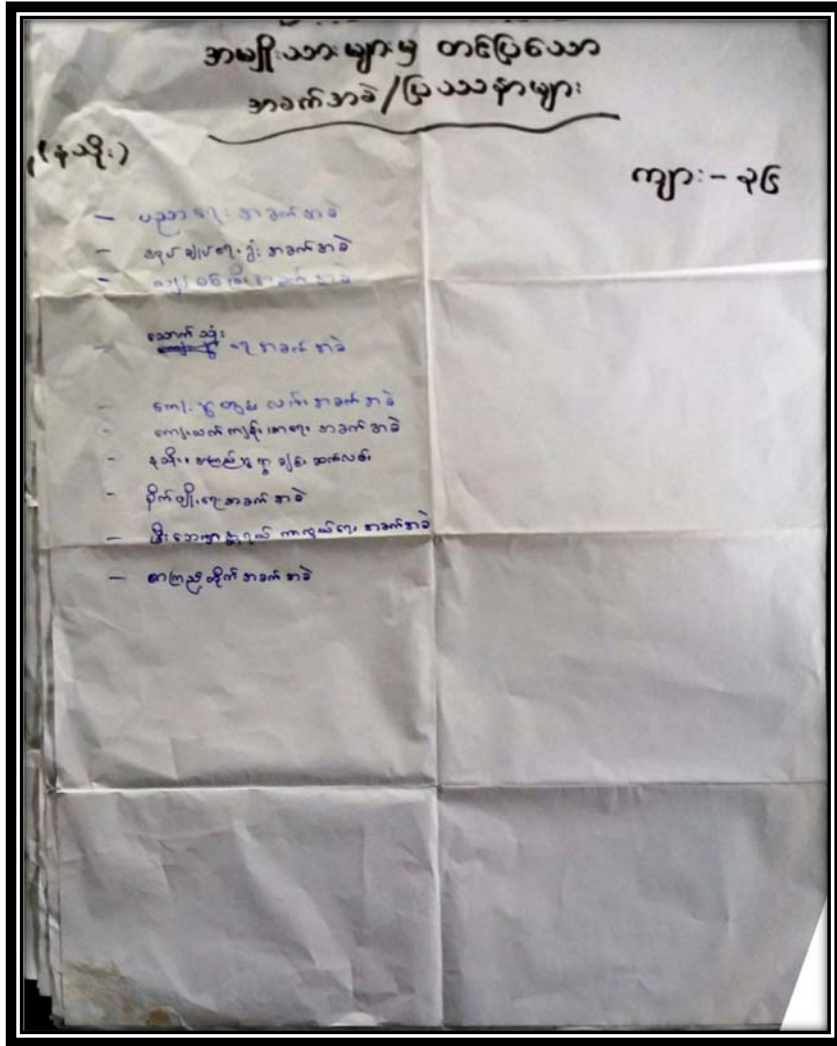 အမျိုးသားများမှ တင်ပြသော
အခက်အခဲ/ပြဿနာများ
(နသိုး)
ကျား - ၃၆
- ပညာရေး အခက်အခဲ
- အုပ်ချုပ်ရေးရုံး အခက်အခဲ
- အခက်အခဲ
သောက်သုံး
- ရေ အခက်အခဲ
- လမ်း အခက်အခဲ
- ကျေးလက်ကျန်းမာရေး အခက်အခဲ
- နသိုး ချင်းဆက်လမ်း
- စိုက်ပျိုးရေး အခက်အခဲ
- မီးဘေးအန္တရာယ် ကာကွယ်ရေး အခက်အခဲ
- စာကြည့်တိုက် အခက်အခဲ